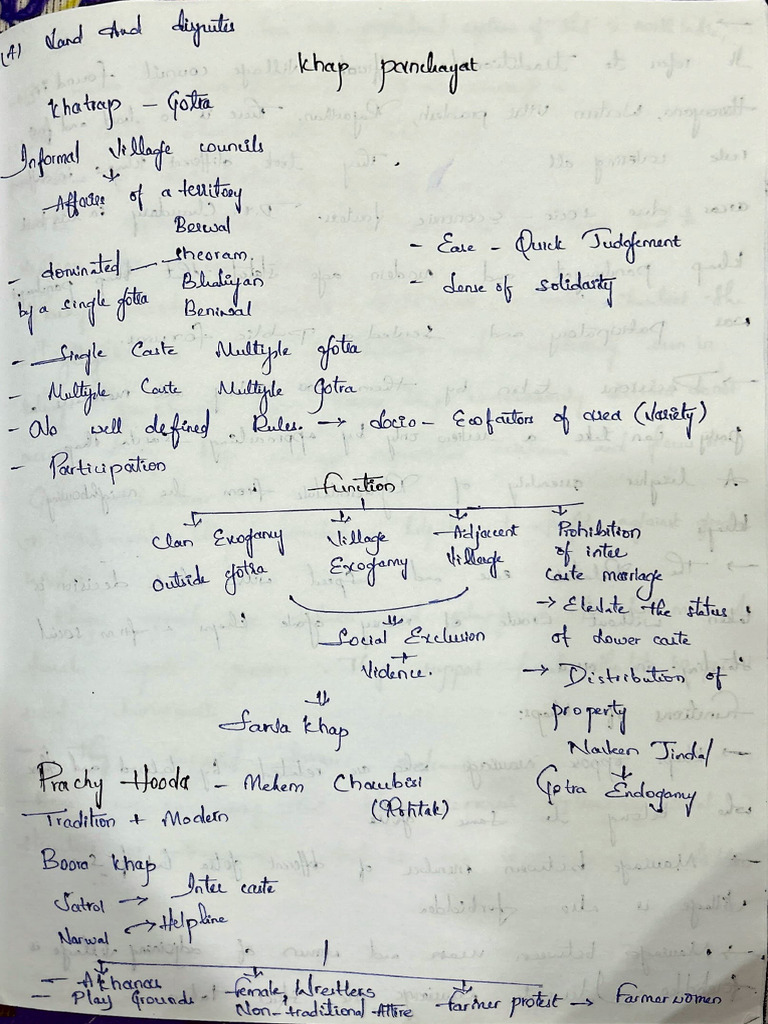 (A) Land And disputes
Khap panchayat
Khatrap - Gotra
Informal Village councils
Affairs of a territory
Berwal
- dominated - Sheoram
by a single gotra
Bhaliyan
Beniwal
- Ease - Quick Judgement
- Sense of solidarity
- Single Caste Multiple gotra
- Multiple Caste Multiple Gotra
- No well defined Rules. → Socio - Ecofactors of area (Variety)
- Participation
Function
Clan Exogamy
outside gotra
Village
Exogamy
Adjacent
Village
Prohibition
of inter
caste marriage
→ Elevate the status
of Lower caste
→ Distribution of
property
Naveen Jindal
Gotra Endogamy
Social Exclusion
Violence.
Khap
Prachy Hooda - Mehem Chaubisi
(Rohtak)
Tradition + Modern
Boora khap
Satrol → Inter caste
Narwal → Helpline
- Akharas
- Play Grounds
female, Wrestlers
Non-traditional Attire
farmer protest → Farmer women